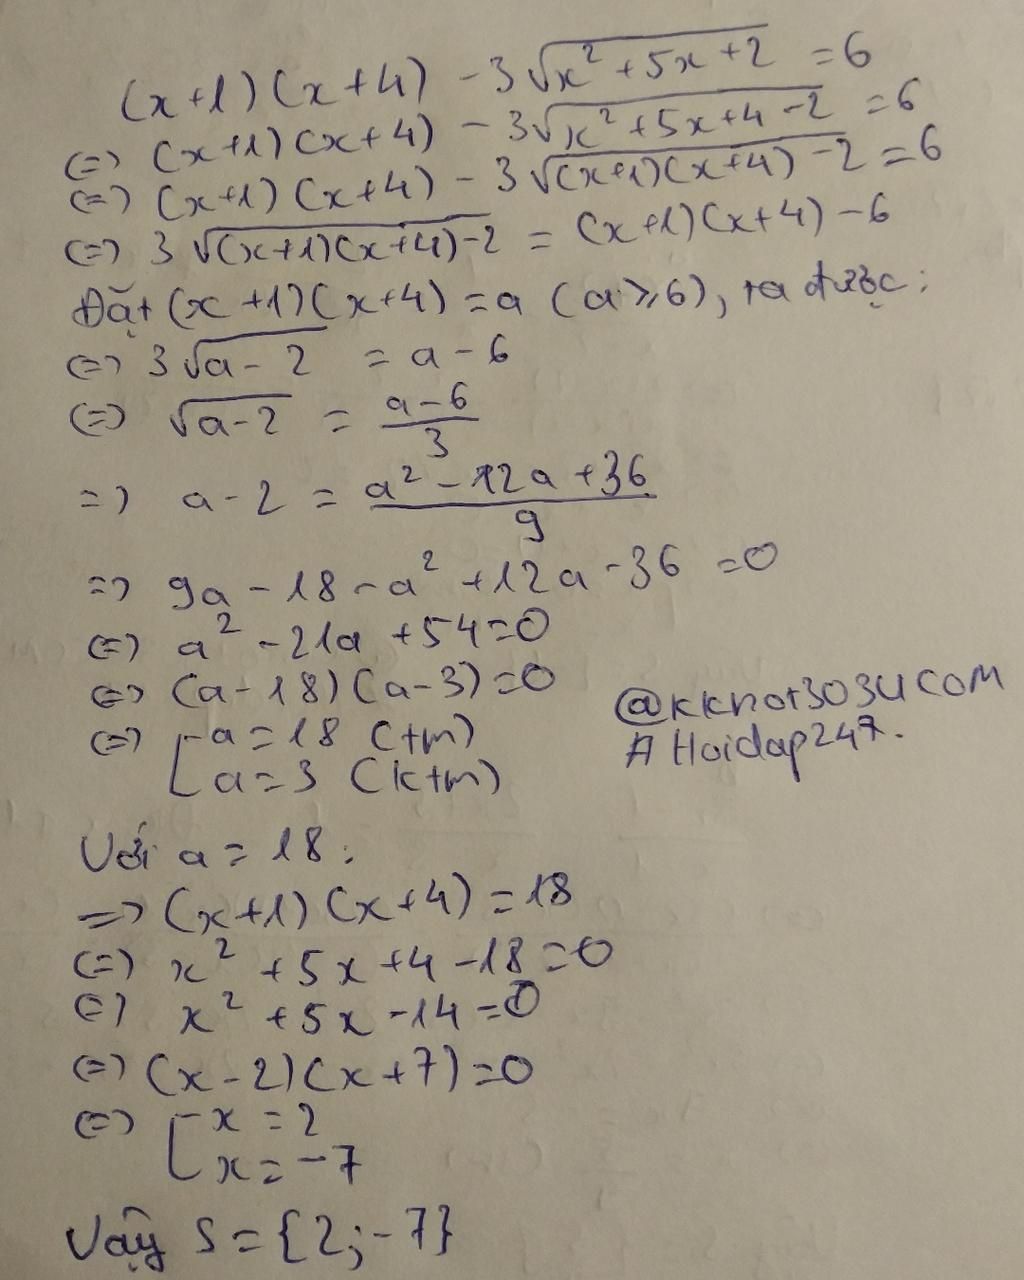 (x+1)(x+4) - 3√(x²+5x+2) = 6
(=) (x+1)(x+4) - 3√(x²+5x+4-2) = 6
(=) (x+1)(x+4) - 3√((x+1)(x+4)-2) = 6
(=) 3√((x+1)(x+4)-2) = (x+1)(x+4) - 6
Đặt (x+1)(x+4) = a (a ≥ 6), ta được:
(=) 3√(a-2) = a - 6
(=) √(a-2) = (a-6)/3
=) a - 2 = (a² - 12a + 36)/9
=) 9a - 18 - a² + 12a - 36 = 0
(=) a² - 21a + 54 = 0
(=) (a-18)(a-3) = 0
(=) [ a = 18 (tm)
a = 3 (ktm)
@kknot3034COM
# Hoidap247.
Với a = 18:
=> (x+1)(x+4) = 18
(=) x² + 5x + 4 - 18 = 0
(=) x² + 5x - 14 = 0
(=) (x-2)(x+7) = 0
(=) [ x = 2
x = -7
Vậy S = {2; -7}